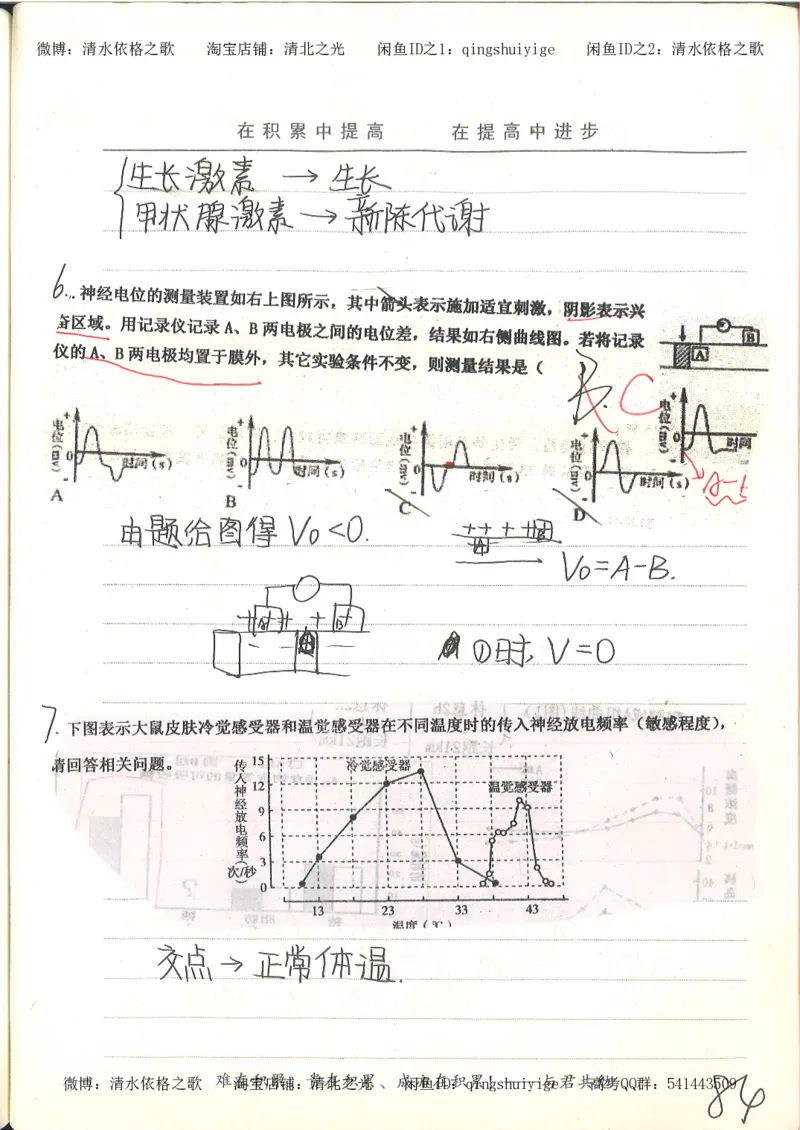 微博：清水依格之歌 淘宝店铺：清北之光 闲鱼ID之1：qingshuiyige 闲鱼ID之2：清水依格之歌
在积累中提高 在提高中进步
生长激素 → 生长
甲状腺激素 → 新陈代谢
6. 神经电位的测量装置如右上图所示，其中箭头表示施加适宜刺激，阴影表示兴
奋区域。用记录仪记录 A、B 两电极之间的电位差，结果如右侧曲线图。若将记录
仪的 A、B 两电极均置于膜外，其它实验条件不变，则测量结果是（
B. C
A B
电位(mv) + 0 - 时间
电位(mv) + 0 - 时间(s)
A
电位(mv) + 0 - 时间(s)
B
电位(mv) + 0 - 时间(s)
C
电位(mv) + 0 - 时间(s)
D
由题给图得 V₀<0.
++++ A B
V₀=A-B.
①时, V=0
7. 下图表示大鼠皮肤冷觉感受器和温觉感受器在不同温度时的传入神经放电频率（敏感程度），
请回答相关问题。
传入神经放电频率（次/秒）
15
12
9
6
3
0
冷觉感受器
温觉感受器
13 23 33 43
温度（℃）
交点 → 正常体温.
微博：清水依格之歌 淘宝店铺：清北之光 闲鱼ID：qingshuiyige 高考QQ群：541443509
84